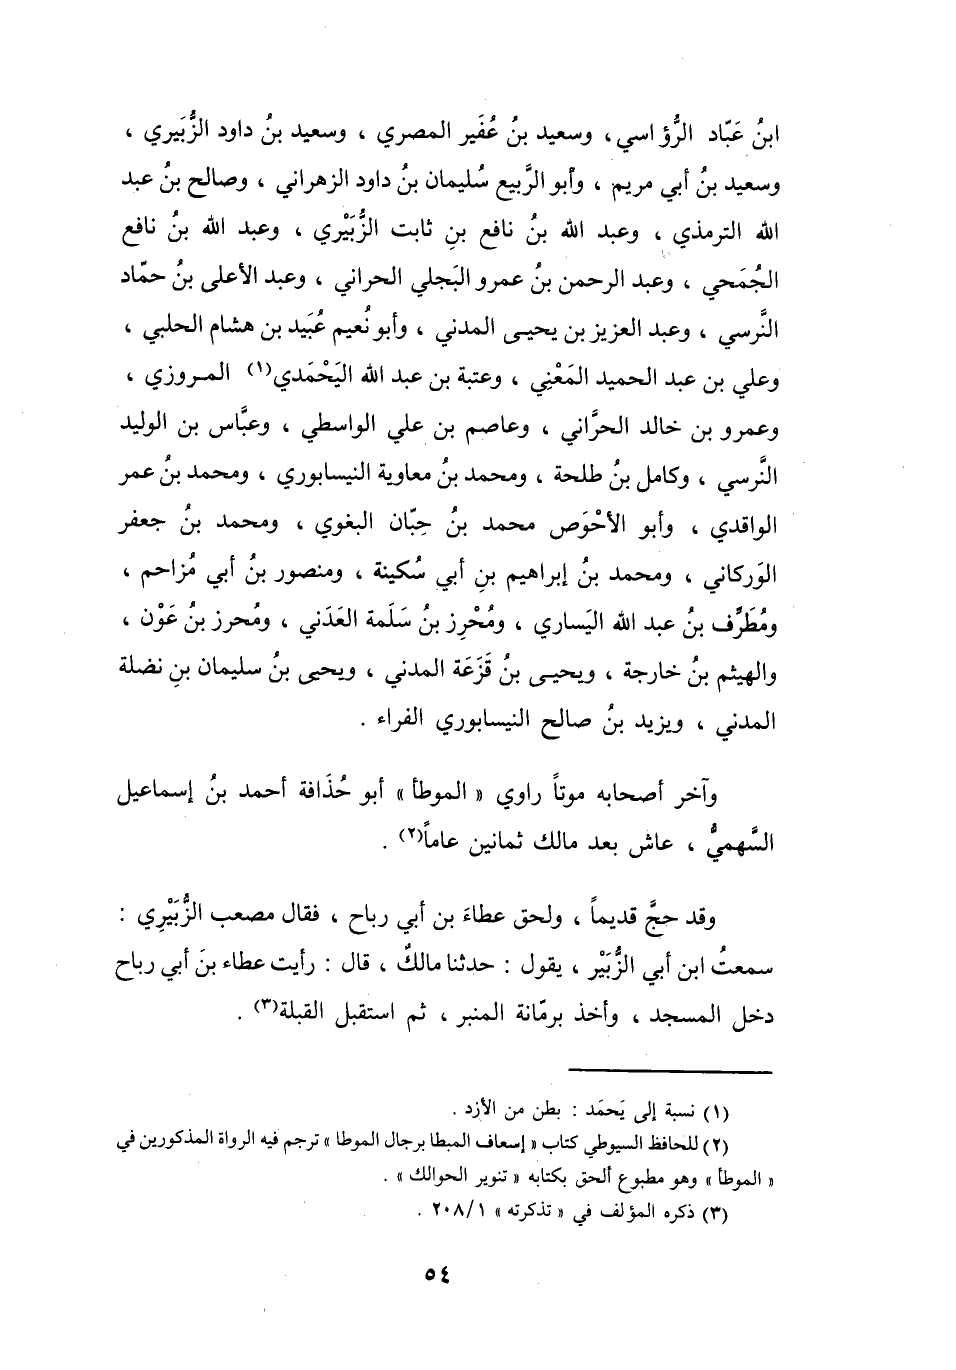 ابنُ عَبّاد الرُّؤاسي ، وسعيد بنُ عُفَير المصري ، وسعيد بنُ داود الزُّبَيري ،
وسعيد بنُ أبي مريم ، وأبو الرَّبيع سُليمان بنُ داود الزهراني ، وصالح بنُ عبد
الله الترمذي ، وعبد الله بنُ نافع بنِ ثابت الزُّبَيْري ، وعبد الله بنُ نافع
الجُمَحي ، وعبد الرحمن بنُ عمرو البَجلي الحراني ، وعبد الأعلى بنُ حمّاد
النَّرسي ، وعبد العزيز بن يحيى المدني ، وأبو نُعيم عُبَيد بن هشام الحلبي ،
وعلي بن عبد الحميد المَعْنِي ، وعتبة بن عبد الله اليَحْمَدي(١) المروزي ،
وعمرو بن خالد الحرَّاني ، وعاصم بن علي الواسطي ، وعبَّاس بن الوليد
النَّرسي ، وكامل بنُ طلحة ، ومحمد بنُ معاوية النيسابوري ، ومحمد بنُ عمر
الواقدي ، وأبو الأحْوَص محمد بنُ حِبّان البغوي ، ومحمد بنُ جعفر
الوَركاني ، ومحمد بنُ إبراهيم بنِ أبي سُكينة ، ومنصور بنُ أبي مُزاحم ،
ومُطَرِّف بنُ عبد الله اليَساري ، ومُحْرِز بنُ سَلَمة العَدَني ، ومُحرز بنُ عَوْن ،
والهيثم بنُ خارجة ، ويحيى بنُ قَزَعَة المدني ، ويحيى بنُ سليمان بنِ نضلة
المدني ، ويزيد بنُ صالح النيسابوري الفراء .
وآخر أصحابه موتاً راوي « الموطأ » أبو حُذَافة أحمد بنُ إسماعيل
السَّهميُّ ، عاش بعد مالك ثمانين عاماً(٢) .
وقد حجَّ قديماً ، ولحق عطاءَ بن أبي رباح ، فقال مصعب الزُّبَيْرِي :
سمعتُ ابن أبي الزُّبَيْر ، يقول : حدثنا مالكٌ ، قال : رأيت عطاء بنَ أبي رباح
دخل المسجد ، وأخذ برمّانة المنبر ، ثم استقبل القبلة(٣) .
(١) نسبة إلى يَحمَد : بطن من الأزد .
(٢) للحافظ السيوطي كتاب « إسعاف المبطا برجال الموطا » ترجم فيه الرواة المذكورين في
« الموطأ » وهو مطبوع ألحق بكتابه « تنوير الحوالك » .
(٣) ذكره المؤلف في « تذكرته » ٢٠٨/١ .
٥٤